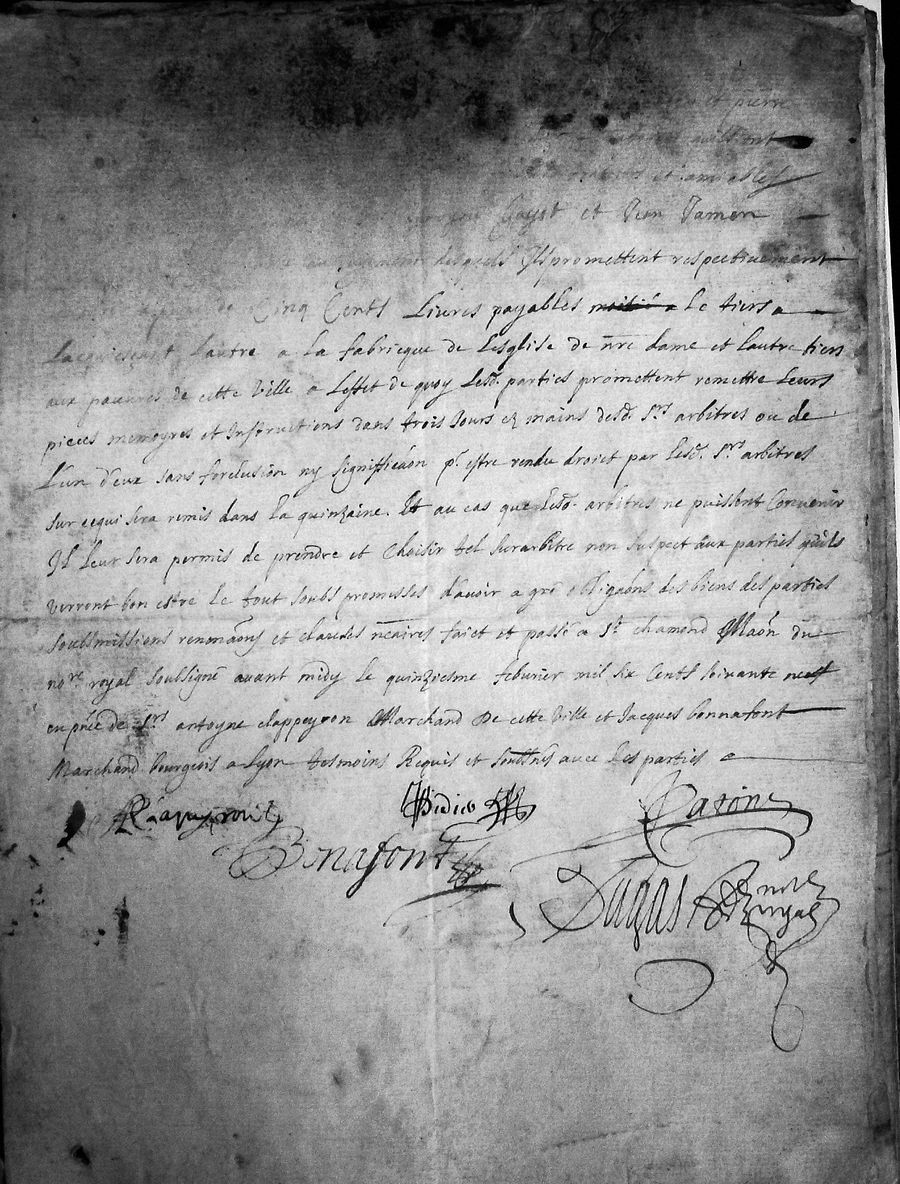 et pierre
quilz ont
et amiables
Gayot et Jean Damen
desquels Ils promettent respectivement
de Cinq Cents Livres payables moitié a Le tiers a
Lacquiesçant Lautre a La fabricque de Lesglise de nre dame et Lautre tiers
aux pauvres de cette Ville a Leffet de quoy Lesd. parties promettent remettre Leurs
pieces memoyres et Instructions dans trois Jours ez mains desd. Srs arbitres ou de
L'un d'eux sans forclusion ny signifficaon pr estre rendu droict par Lesd. Srs arbitres
sur cequi sera remis dans La quinzaine. Et au cas que Lesd. arbitres ne puissent Convenir
Il Leur sera permis de prendre et Choisir tel surarbitre non suspect aux parties quils
verront bon estre Le tout soubs promesses d'avoir a gré obligaons des biens des parties
soubsmissions renonaons et clauses nécaires faict et passé a St chamond Maon du
nore royal soubsigné avant midy Le quinziesme febvrier mil six Cents soixante neuf
en pnce de Srs antoyne clappeyron Marchand de cette Ville et Jacques bonnafont
Marchand bourgeois a Lyon tesmoins Requis et soubsnés avec Les parties
Bonafont
Dugas nore
royal